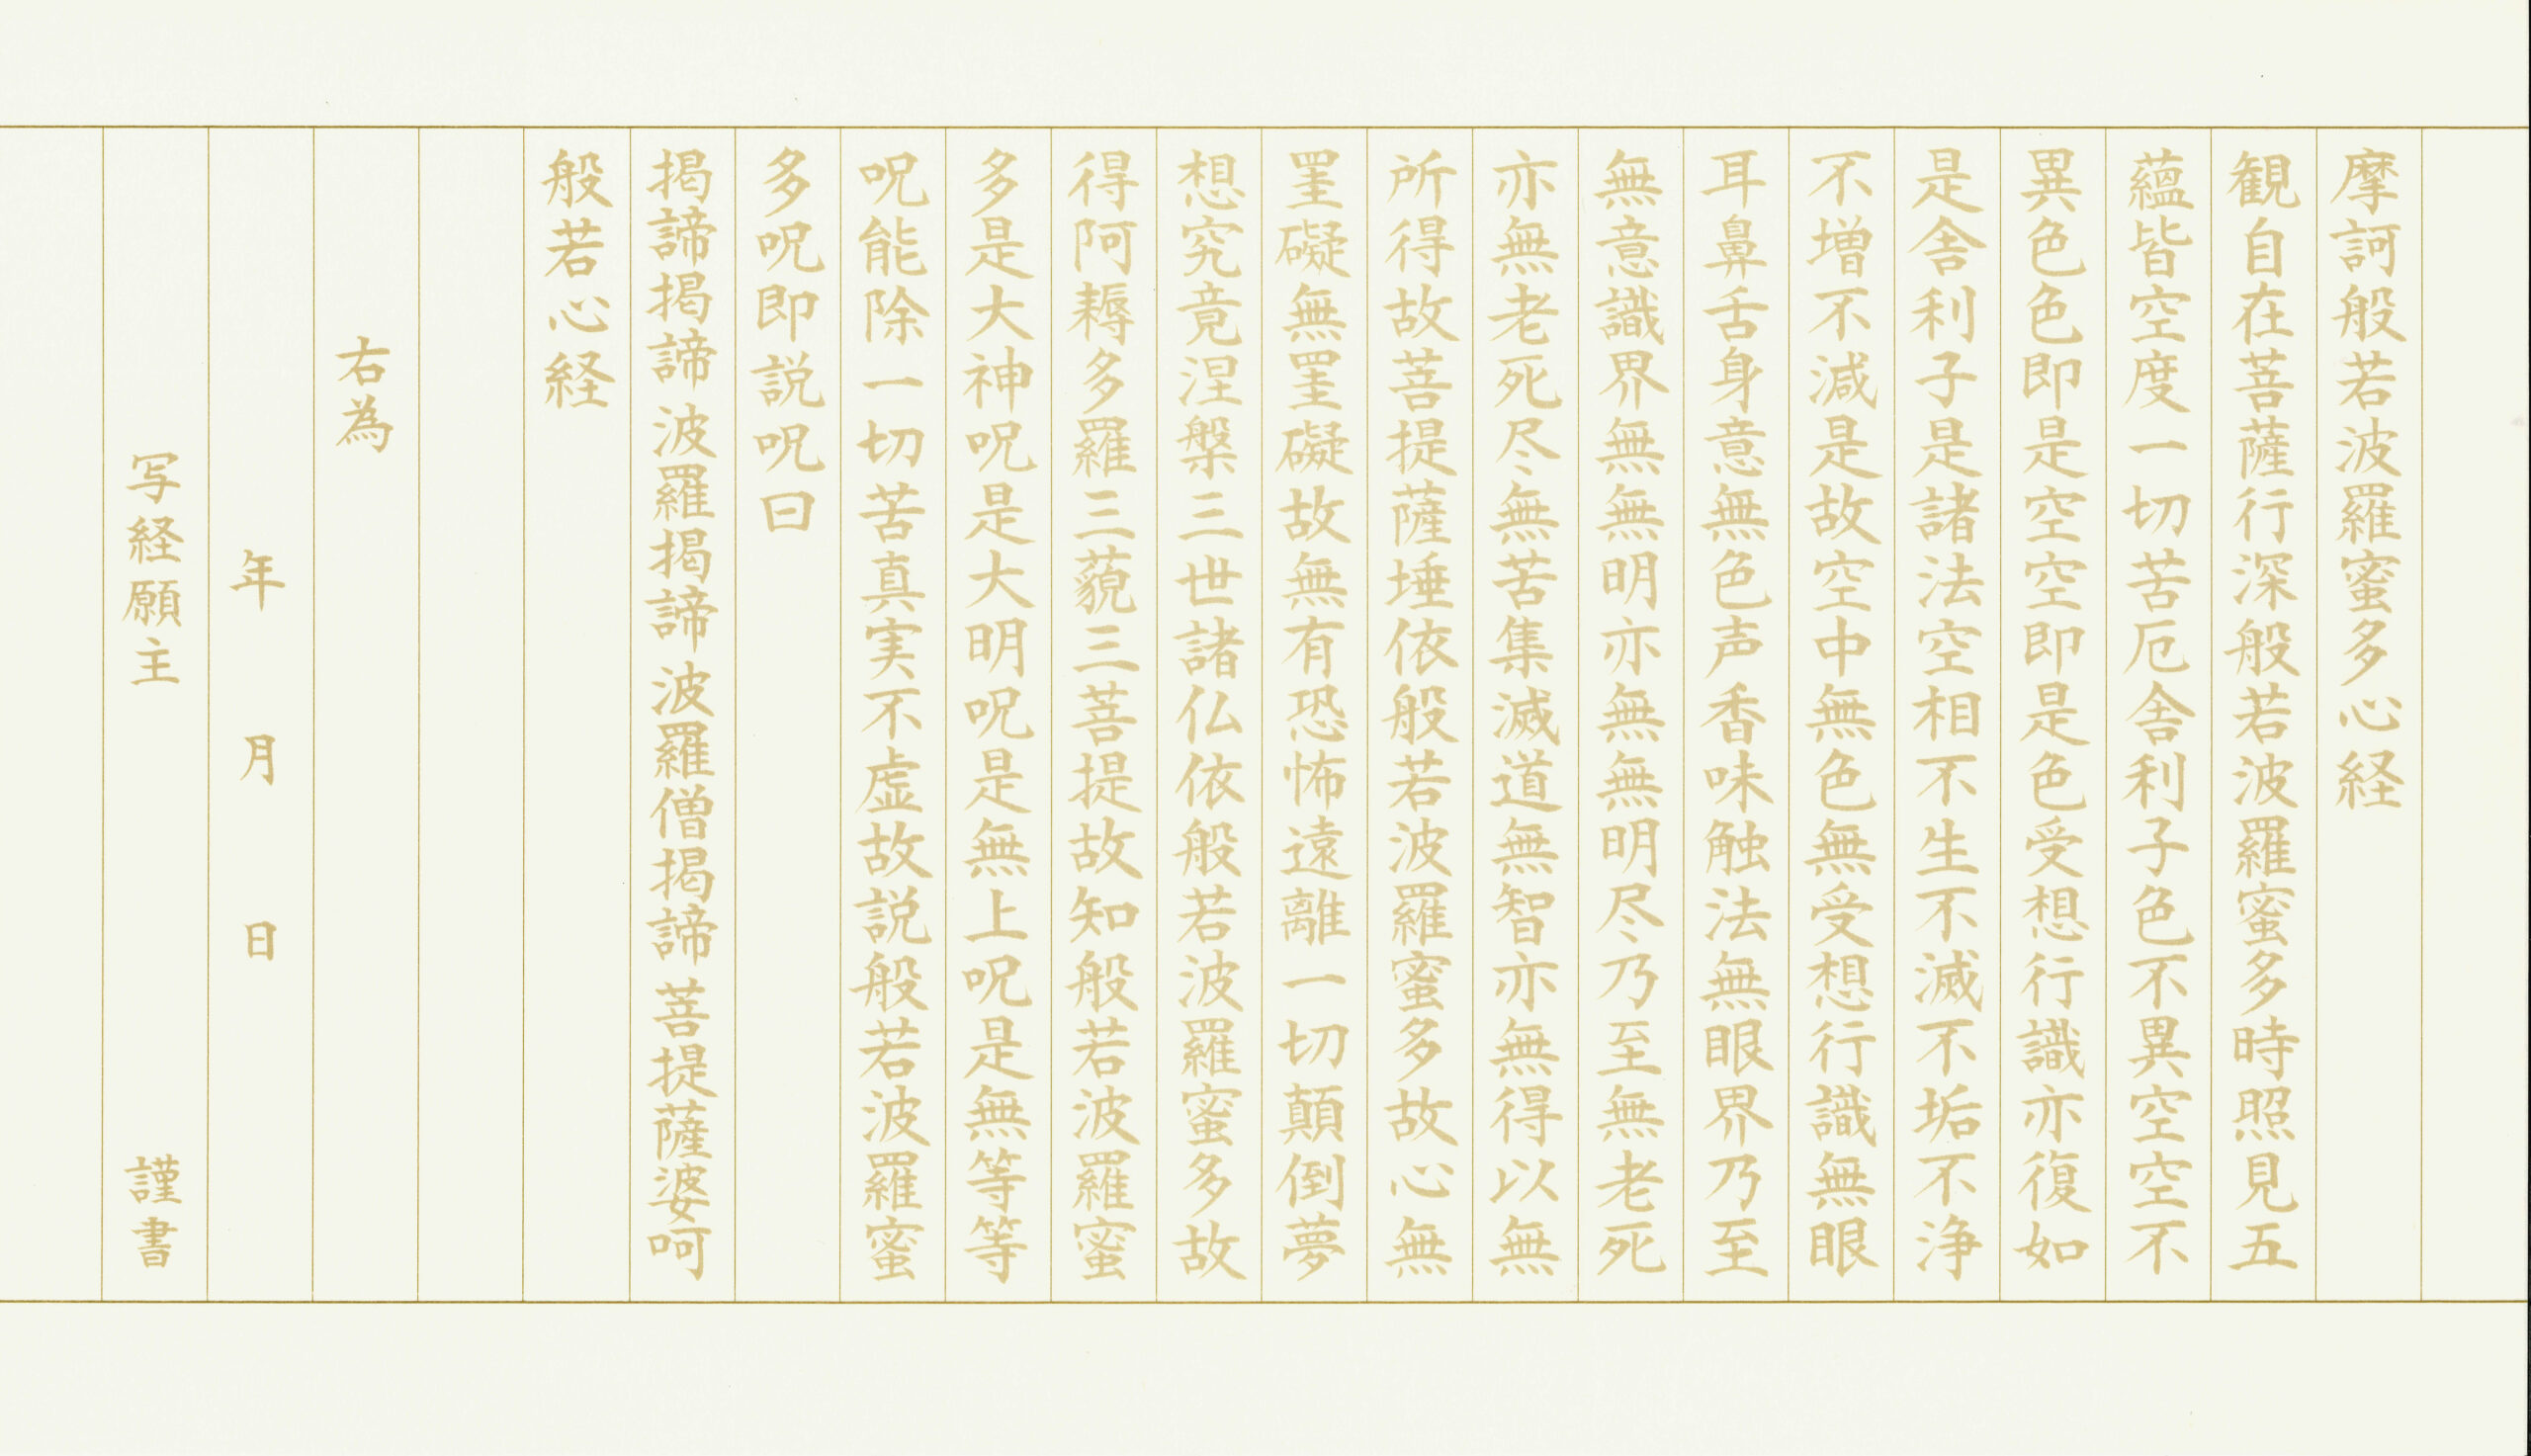 摩訶般若波羅蜜多心経
観自在菩薩行深般若波羅蜜多時照見五
蘊皆空度一切苦厄舎利子色不異空空不
異色色即是空空即是色受想行識亦復如
是舎利子是諸法空相不生不滅不垢不浄
不増不減是故空中無色無受想行識無眼
耳鼻舌身意無色声香味触法無眼界乃至
無意識界無無明亦無無明尽乃至無老死
亦無老死尽無苦集滅道無智亦無得以無
所得故菩提薩埵依般若波羅蜜多故心無
罣礙無罣礙故無有恐怖遠離一切顛倒夢
想究竟涅槃三世諸仏依般若波羅蜜多故
得阿耨多羅三藐三菩提故知般若波羅蜜
多是大神呪是大明呪是無上呪是無等等
呪能除一切苦真実不虚故説般若波羅蜜
多呪即説呪曰
掲諦掲諦 波羅掲諦 波羅僧掲諦 菩提薩婆呵
般若心経
右為
年 月 日
写経願主 謹書